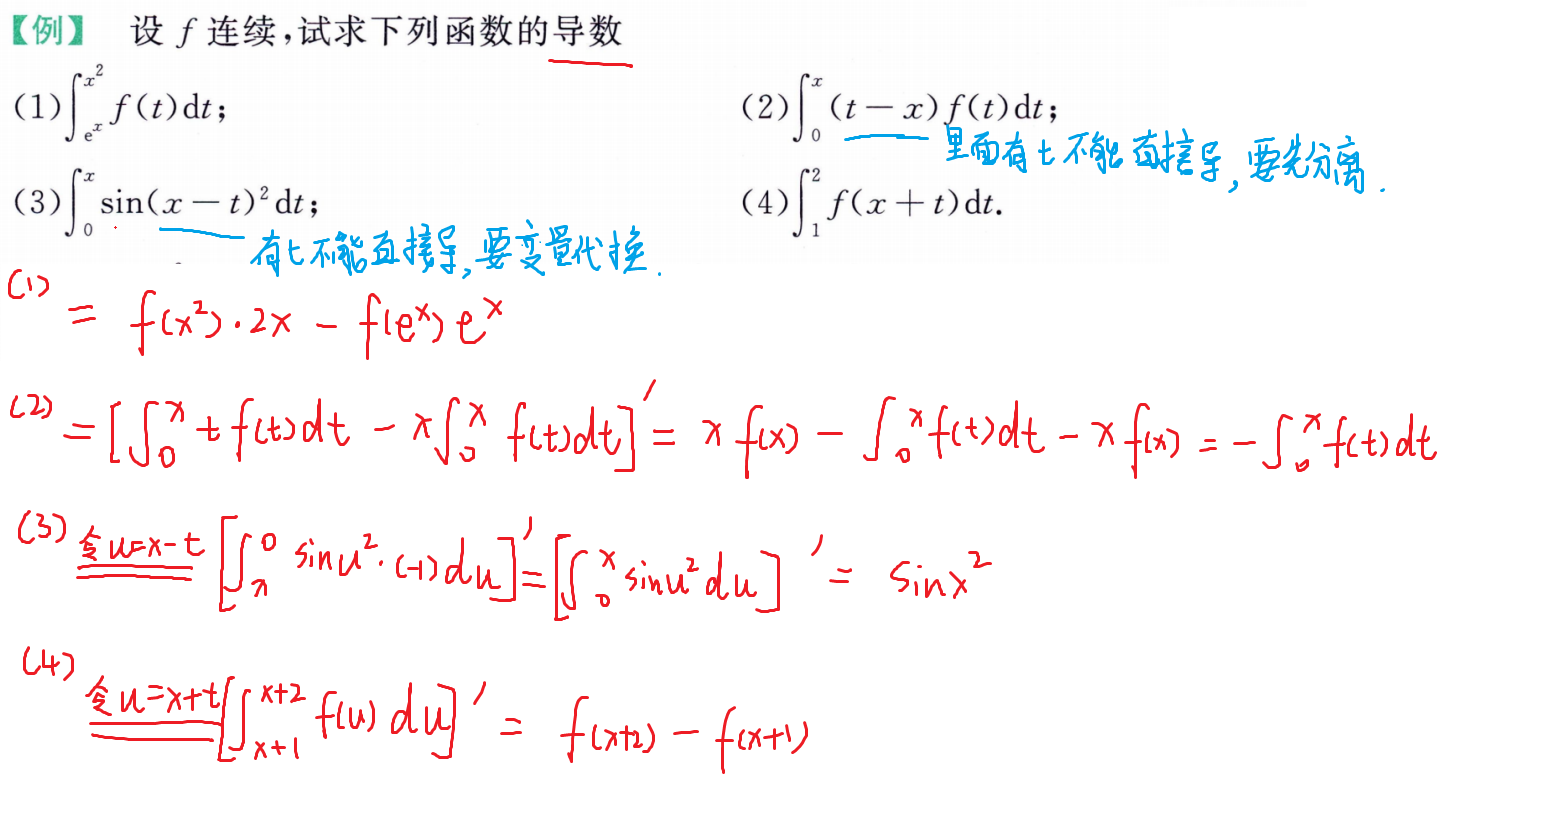 【例】 设 f 连续,试求下列函数的导数
(1)∫_{e^x}^{x^2} f(t)dt; (2)∫_0^x (t－x)f(t)dt;
里面有t不能直接导,要先分离.
(3)∫_0^x sin(x－t)^2dt; (4)∫_1^2 f(x＋t)dt.
有t不能直接导,要变量代换.
(1) = f(x²)·2x － f(e^x)e^x
(2) = [∫_0^x t f(t)dt － x∫_0^x f(t)dt]′ = x f(x) － ∫_0^x f(t)dt － x f(x) = －∫_0^x f(t)dt
(3) 令u=x-t [∫_x^0 sinu²·(-1)du]′ = [∫_0^x sinu²du]′ = sinx²
(4) 令u=x+t [∫_{x+1}^{x+2} f(u)du]′ = f(x+2) － f(x+1)